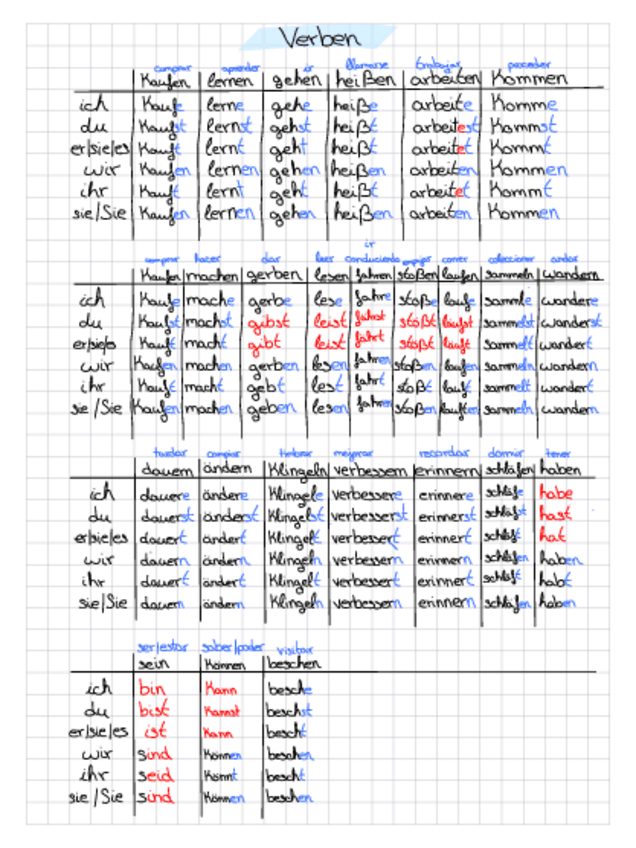 Verben
comprar aprender ir llamarse trabajar proceder
Kaufen lernen gehen heißen arbeiten Kommen
ich Kaufe lerne gehe heiße arbeite Komme
du Kaufst lernst gehst heißt arbeitest Kommst
er/sie/es Kauft lernt geht heißt arbeitet Kommt
wir Kaufen lernen gehen heißen arbeiten Kommen
ihr Kauft lernt geht heißt arbeitet Kommt
sie/Sie Kaufen lernen gehen heißen arbeiten Kommen
ir
comprar hacer dar leer conduciendo empujar correr coleccionar andar
Kaufen machen gerben lesen fahren stoßen laufen sammeln wandern
ich Kaufe mache gerbe lese fahre stoße laufe sammle wandere
du Kaufst machst gibst leist fährst stößt läufst sammelst wanderst
er/sie/es Kauft macht gibt leist fährt stößt läuft sammelt wandert
wir Kaufen machen gerben lesen fahren stoßen laufen sammeln wandern
ihr Kauft macht gebt lest fahrt stoßt lauft sammelt wandert
sie/Sie Kaufen machen geben lesen fahren stoßen lauften sammeln wandern
tardar cambiar timbrar mejorar recordar dormir tener
dauern ändern Klingeln verbessern erinnern schläfen haben
ich dauere ändere Klingele verbessere erinnere schläfe habe
du dauerst änderst Klingelst verbesserst erinnerst schläfst hast
er/sie/es dauert ändert Klingelt verbessert erinnert schläft hat
wir dauern ändern Klingeln verbessern erinnern schläfen haben
ihr dauert ändert Klingelt verbessert erinnert schläft habt
sie/Sie dauern ändern Klingeln verbessern erinnern schläfen haben
ser/estar saber/poder visitar
sein Können beschen
ich bin Kann besche
du bist Kannst beschst
er/sie/es ist Kann bescht
wir sind Können beschen
ihr seid Könnt bescht
sie/Sie sind Können beschen